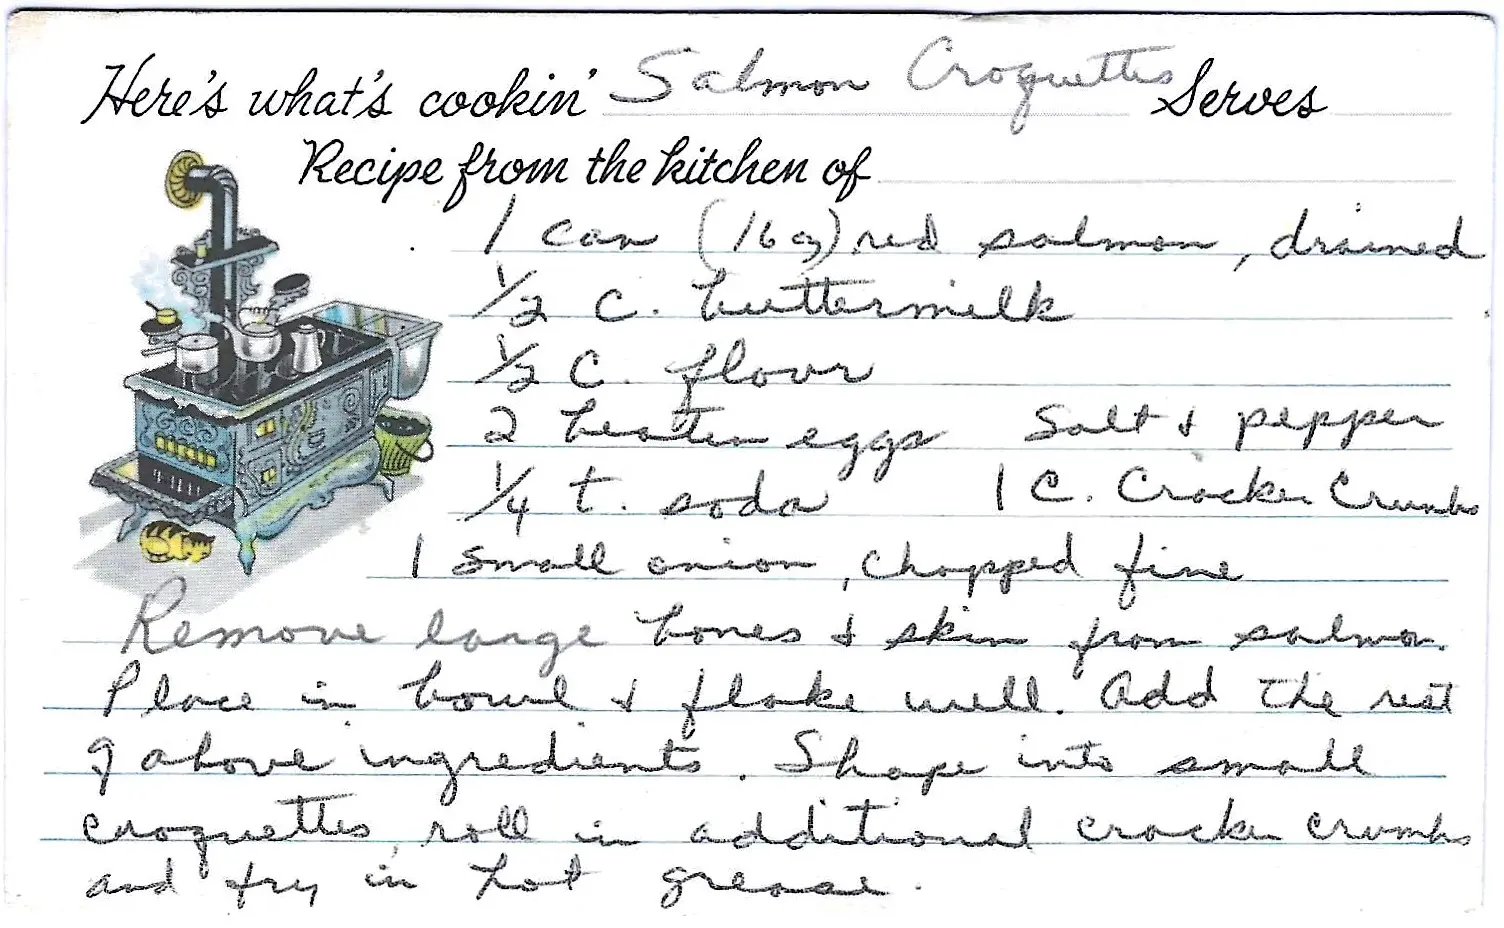 Here's what's cookin' Salmon Croquettes Serves
Recipe from the kitchen of
1 can (16 oz) red salmon, drained
1/2 C. buttermilk
1/2 C. flour
2 beaten eggs Salt & pepper
1/4 t. soda 1 C. Cracker Crumbs
1 small onion, chopped fine
Remove large bones & skin from salmon.
Place in bowl & flake well. Add the rest
of above ingredients. Shape into small
croquettes, roll in additional cracker crumbs
and fry in hot grease.